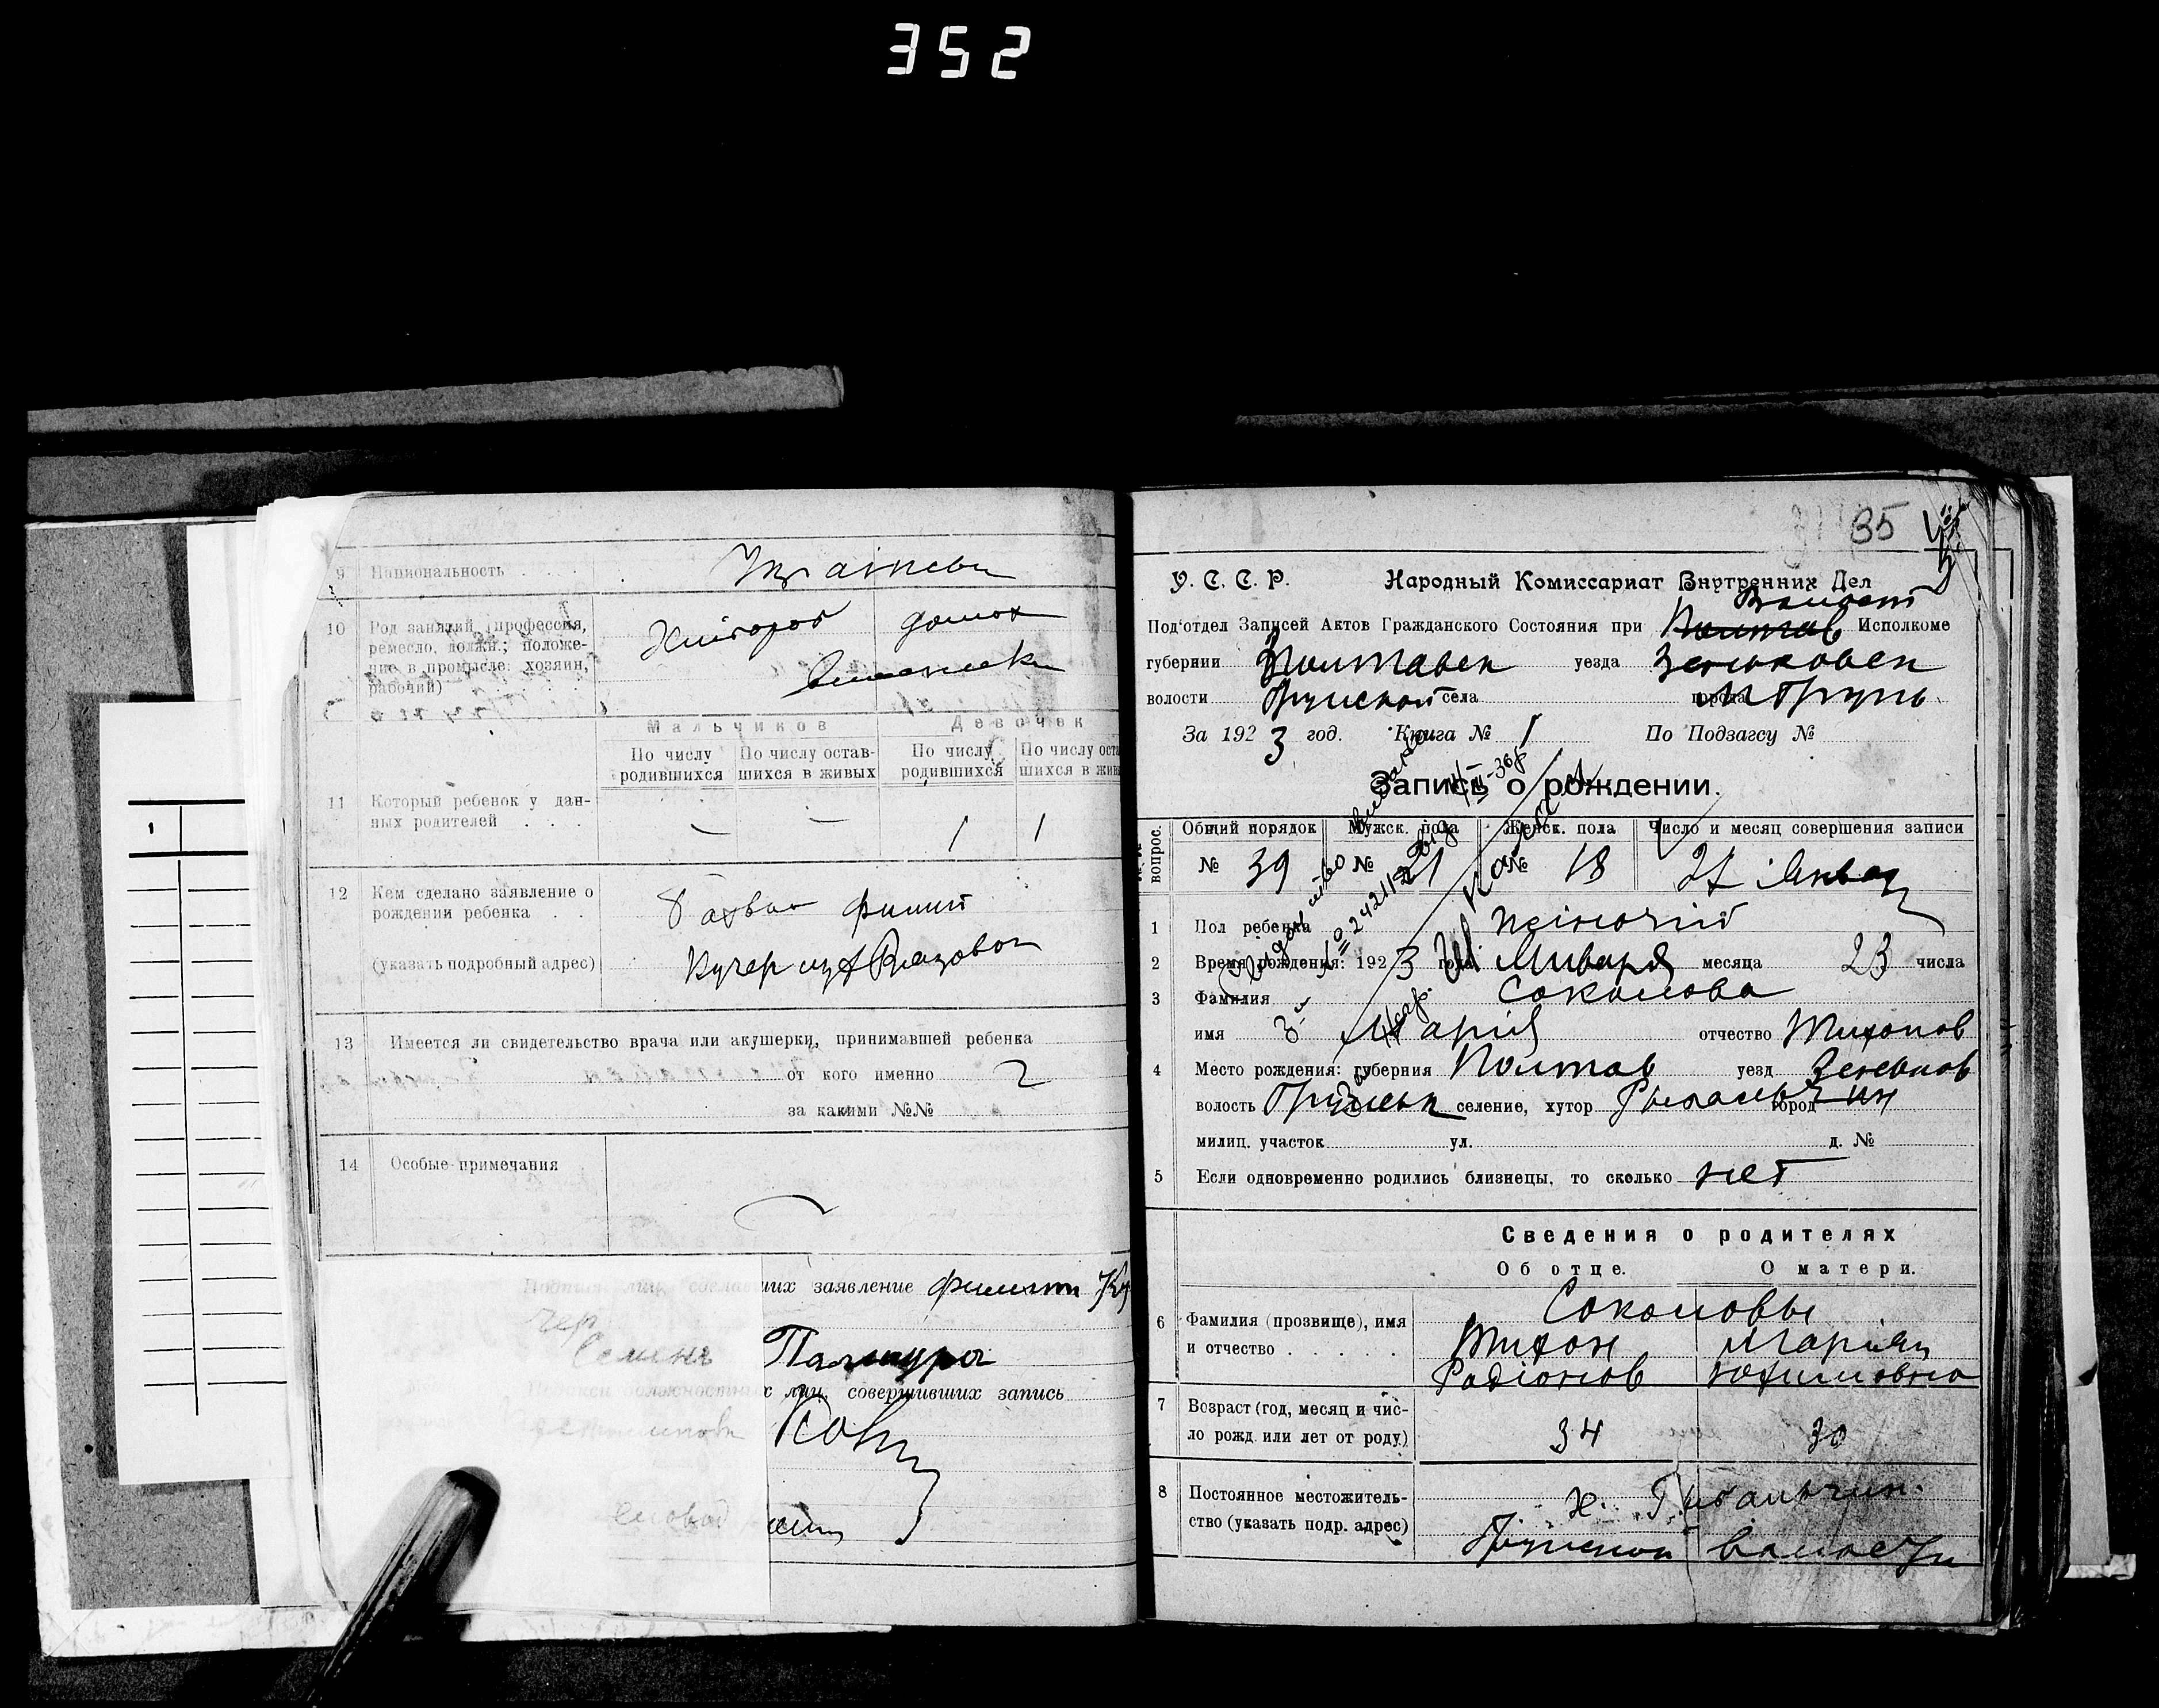 352
9 Национальность
Украінськ
10 Род занятий (профессия,
ремесло, должн.; положе-
ние в промысле: хозяин,
рабочий)
Хлібороб домох
Мальчиков Девочек
По числу родившихся По числу остав-шихся в живых По числу родившихся По числу оста шихся в жив
11 Который ребенок у дан-
ных родителей
— — 1 1
12 Кем сделано заявление о
рождении ребенка
Филип
(указать подробный адрес)
Кучер
13 Имеется ли свидетельство врача или акушерки, принимавшей ребенка
от кого именно
за какими №№
14 Особые примечания
Подписи лиц, сделавших заявление Филипп Ку
чер
Семенъ Палшура
Подписи должностных лиц, совершивших запись
35
У. С. С. Р. Народный Комиссариат Внутренних Дел
Волост
Под'отдел Записей Актов Гражданского Состояния при Полтав Исполкоме
губернии Полтавск уезда Зеньковск
волости Грунской села города м Грунь
За 1923 год. Книга № 1 По Подзагсу №
Запись о рождении.
№№ вопрос.
Общий порядок Мужск. пола Женск. пола Число и месяц совершения записи
№ 39 № 21 № 18 27 Январ
1 Пол ребенка жіночий
2 Время рождения: 1923 года Января месяца 23 числа
3 Фамилия Соколова
имя Марія отчество Тихонов
4 Место рождения: губерния Полтав уезд Зеньков
волость Грунськ селение, хутор город
милиц. участок ул. д. №
5 Если одновременно родились близнецы, то сколько нет
Сведения о родителях
Об отце. О матери.
6 Фамилия (прозвище), имя
и отчество
Соколовы
Тихон Марія
Радіонов Юхимовна
7 Возраст (год, месяц и чис-
ло рожд. или лет от роду)
34 30
8 Постоянное местожитель-
ство (указать подр. адрес)
х.
Грунской волости